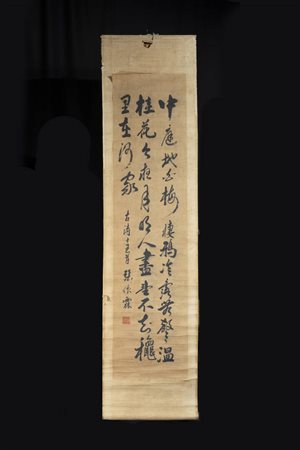 中庭地白樹棲鴉冷露無聲濕
桂花今夜月明人盡望不知穐
思在誰家